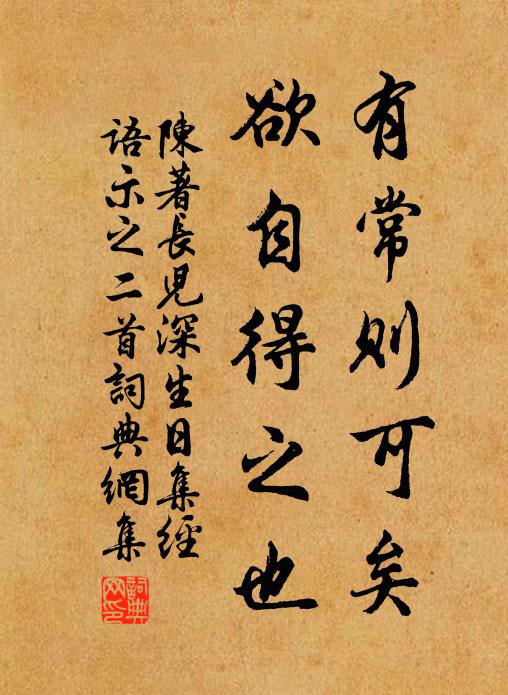 有常則可矣
欲自得之也
陳著長兒深生日集經
語示之二首詞典網集
詞典網印